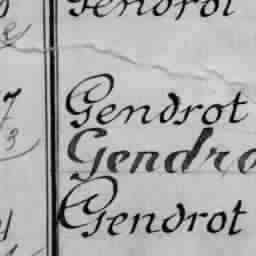 Gendrot
7 Gendrot
3 Gendro
Gendrot